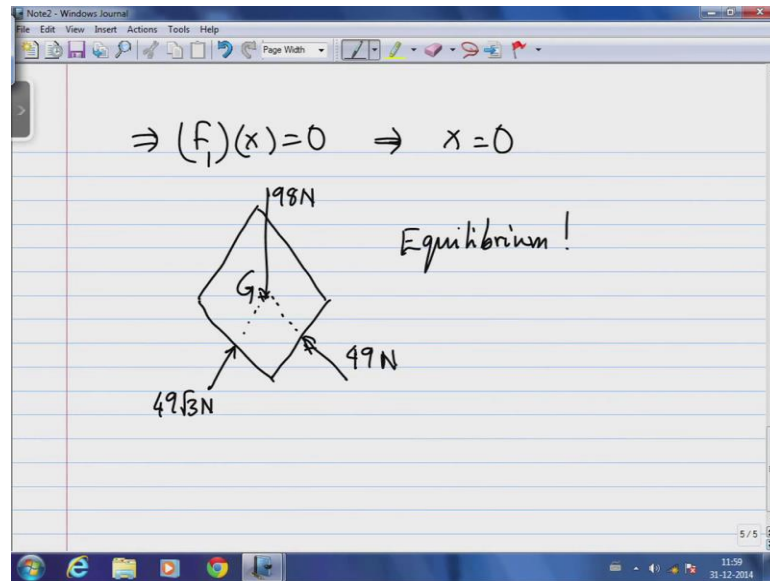 Note2 - Windows Journal
File Edit View Insert Actions Tools Help
Page Width
⇒ (F₁)(x) = 0 ⇒ x = 0
98N
Equilibrium !
G
49 N
49√3N
5 / 5
11:59
31-12-2014